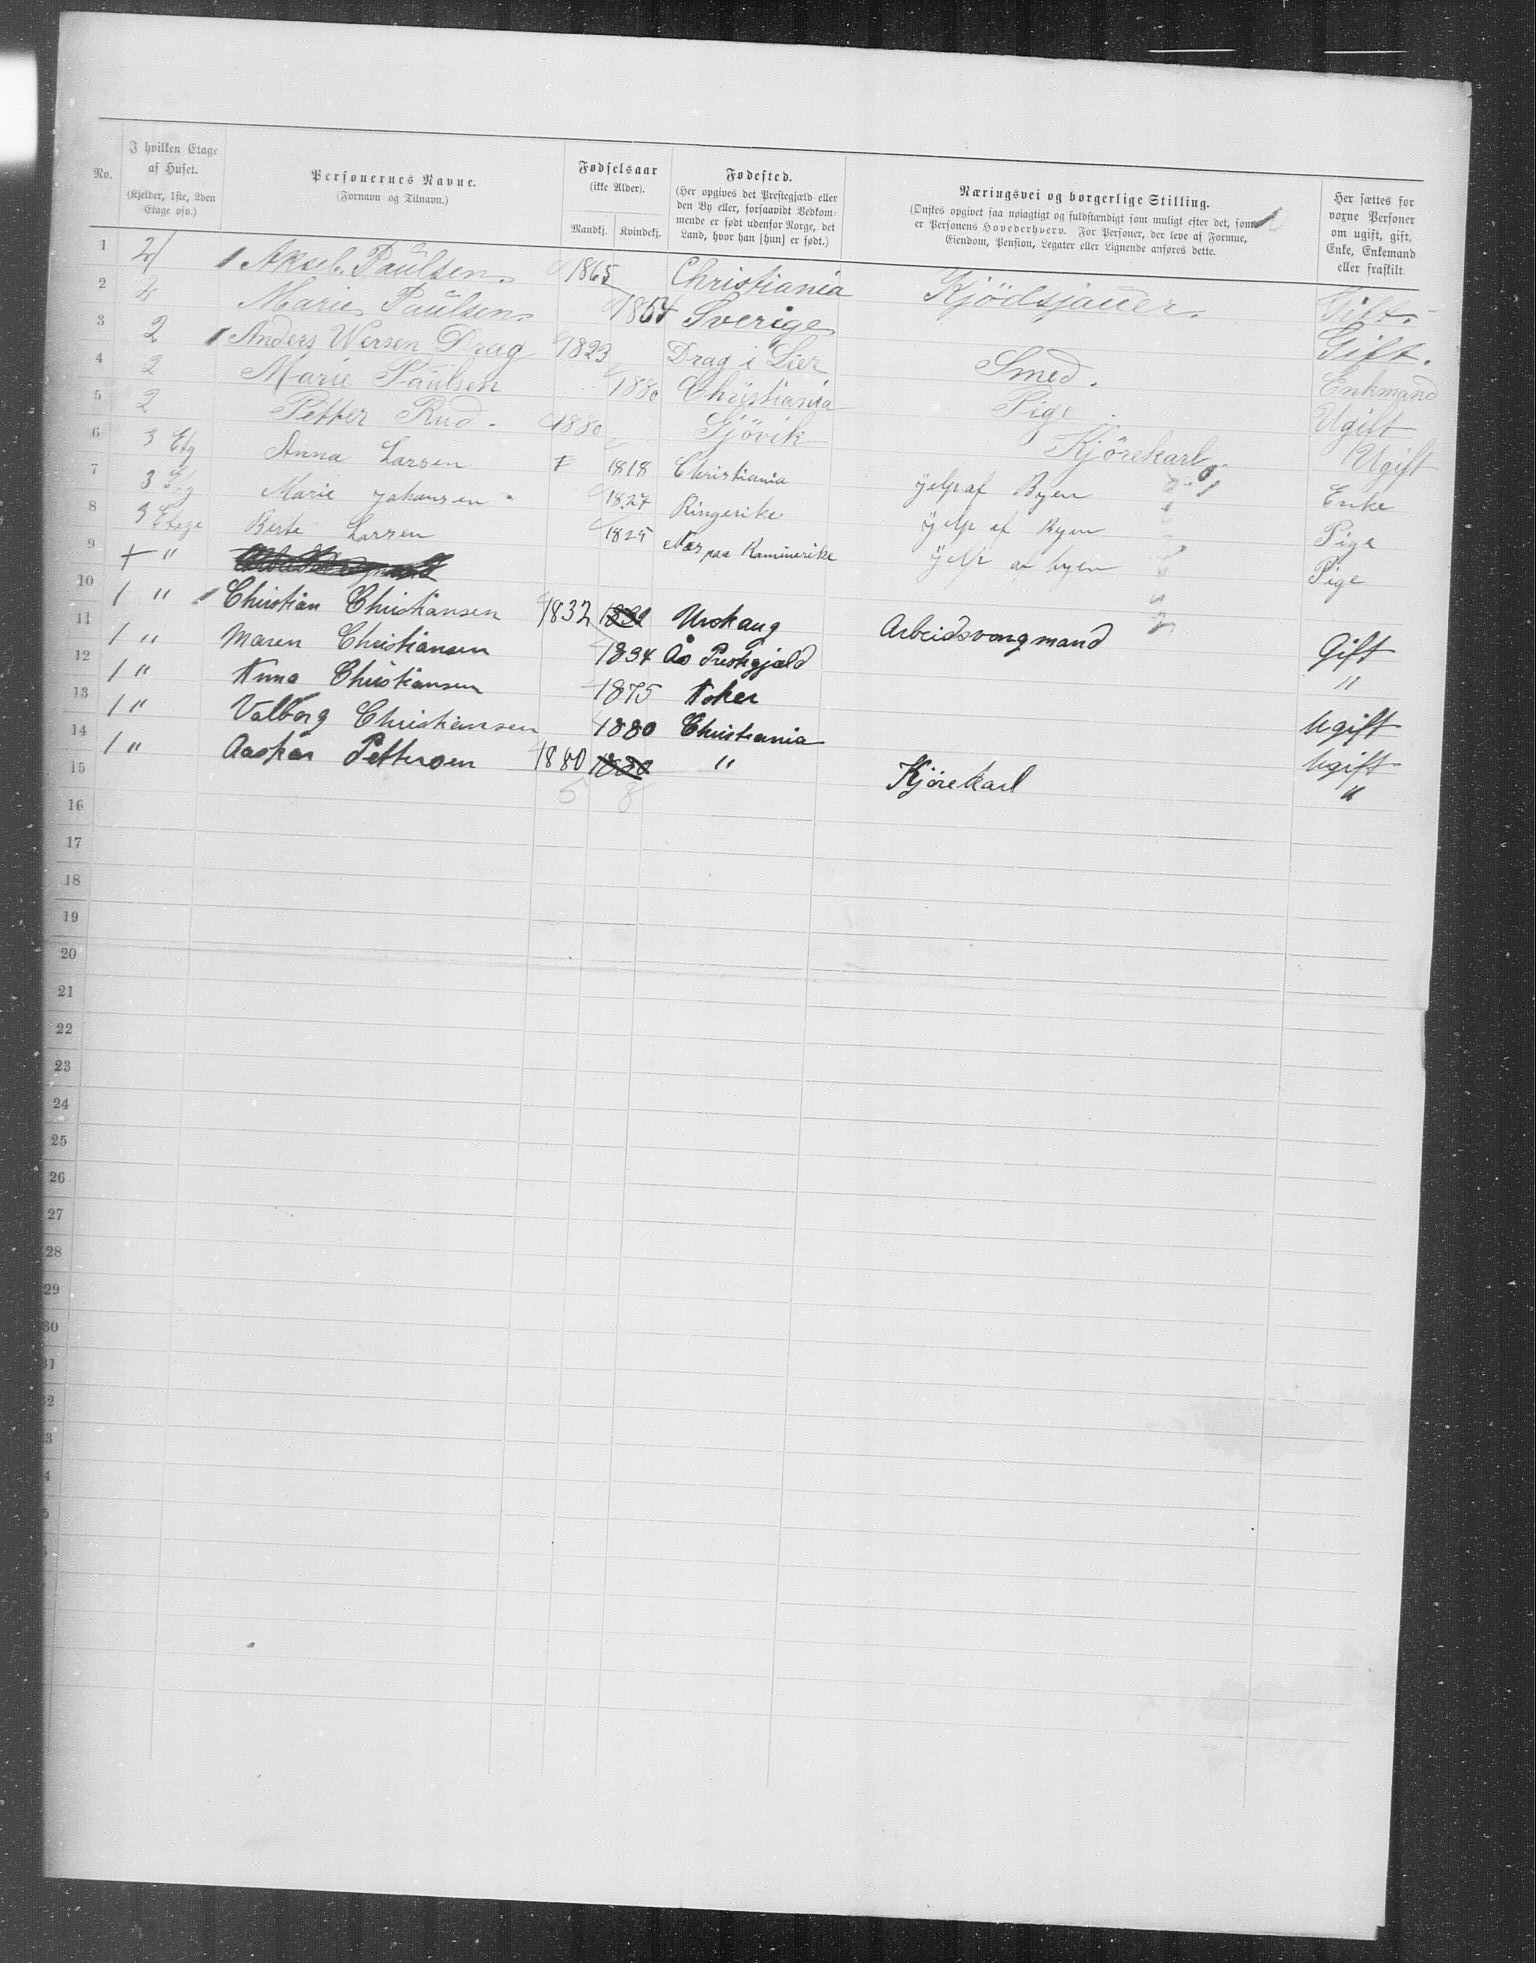 No.
I hvilken Etage af Huset.
(Kjelder, 1ste, 2den Etage osv.)
Personernes Navne.
(Fornavn og Tilnavn.)
Fødselsaar
(ikke Alder).
Mandkj. Kvindekj.
Fødested.
(Her opgives det Prestegjæld eller den By eller, forsaavidt Vedkommende er født udenfor Norge, det Land, hvor han [hun] er født.)
Næringsvei og borgerlige Stilling.
(Ønskes opgivet saa nøiagtigt og fuldstændigt som muligt efter det, som er Personens Hovederhverv. For Personer, der leve af Formue, Eiendom, Pension, Legater eller Lignende anføres dette.
Her sættes for voxne Personer om ugift, gift, Enke, Enkemand eller fraskilt
1 2 Aksel Paulsen. 1865 Christiania Kjödsjauer. Gift.
2 2 Marie Paulsen. 1864 Sverige Gift.
3 2 Anders Wersen Drag 1823 Drag i Lier Smed. Enkmand
4 2 Marie Paulsen 1880 Christiania Pige Ugift
5 2 Petter Rud. 1880 Gjövik Kjörekarl. Ugift
6 3 Etg Anna Larsen 1818 Christiania Hjelp af Byen Enke
7 3 Etg Marie Johansen 1827 Ringerike Hjelp af Byen Pige
8 3 Etage Berte Larsen 1825 Næs paa Rammerike Hjelp af byen Pige
9 + "
10 1 " Christian Christiansen 1832 Urskaug Arbeidsvongmand Gift
11 1 " Maren Christiansen 1834 Ås Prestegjæld "
12 1 " Anna Christiansen 1875 Asker Ugift
13 1 " Valborg Christiansen 1880 Christiania Ugift
14 1 " Aaskar Pettersen 1880 1880 " Kjørekarl "
15 5 8
16
17
18
19
20
21
22
23
24
25
26
27
28
29
30
31
32